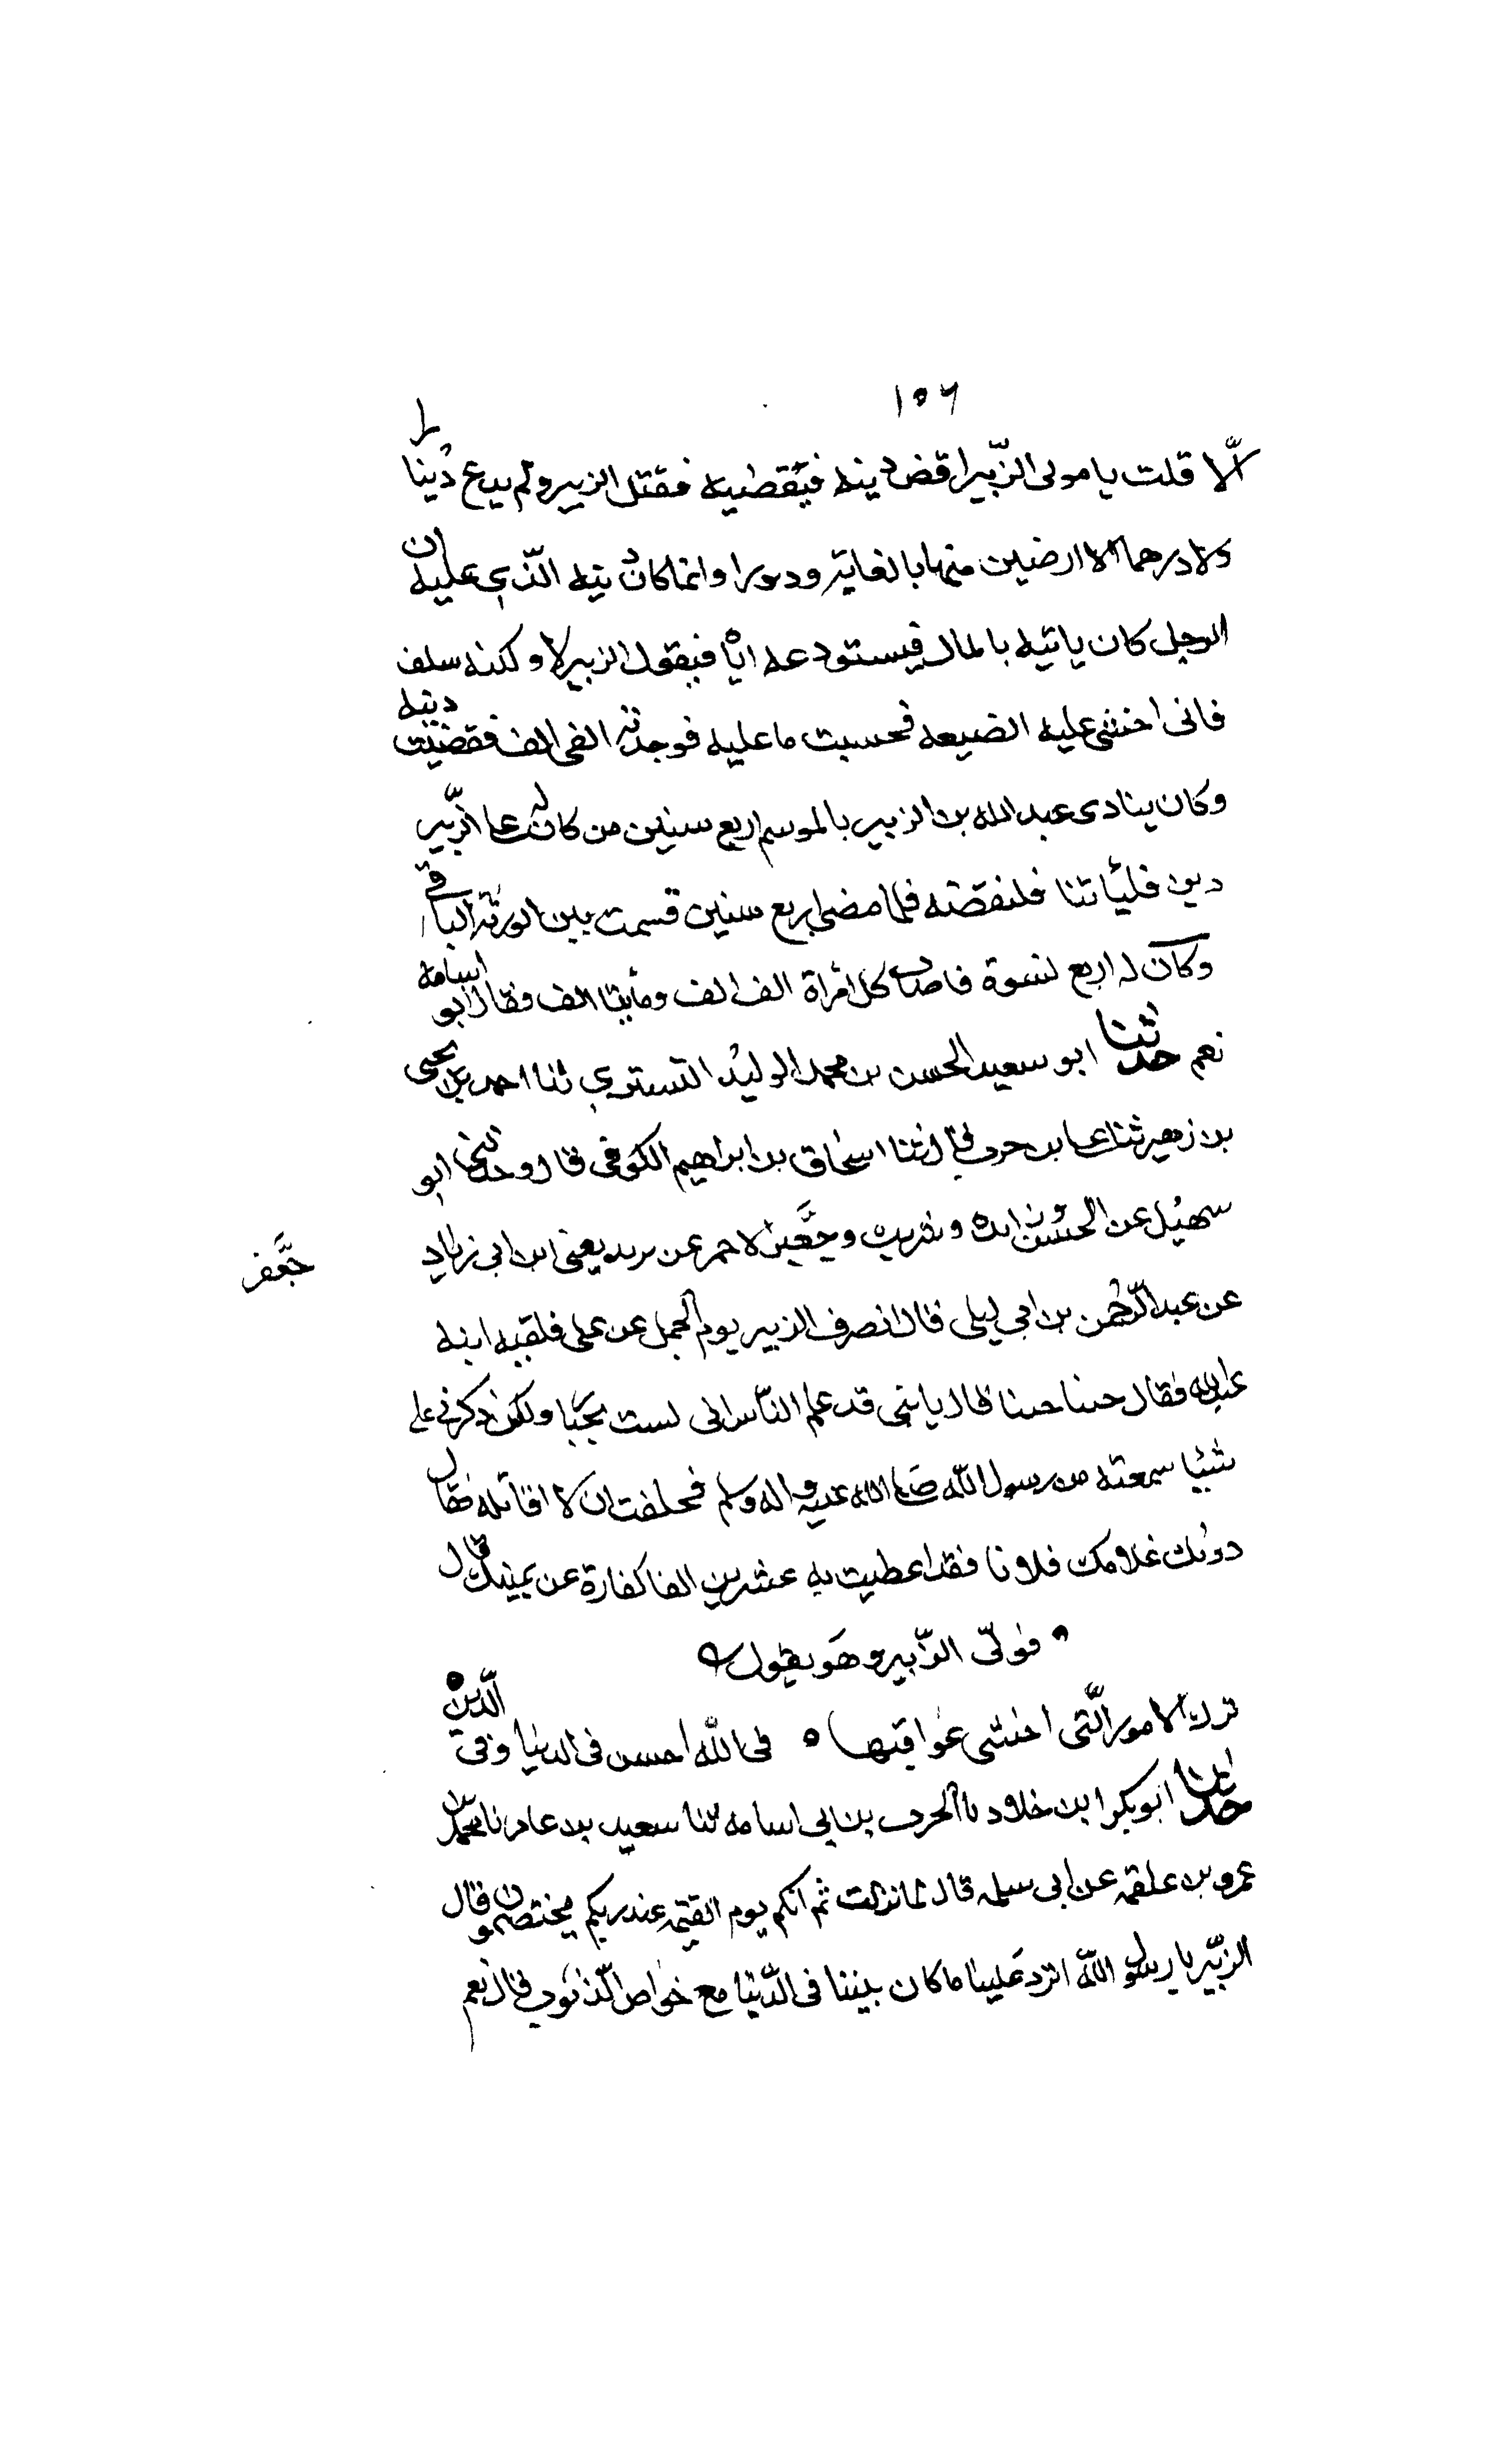 ١٥٦
الّا قلت يا مولى الزّبير اقض دينه فيقضيه فقتل الزبير ولم يدع دينارا
ولا درهما الا ارضين منها بالغابة ودورا وانما كان دينه الذي عليه ان
الرجل كان ياتيه بالمال فيستودعه اياه فيقول الزبير لا ولكنه سلف
فانى اخشى عليه الضيعه فحسبت ما عليه فوجدته الفى الف فقضيت دينه
وكان ينادى عبد الله بن الزبير بالموسم اربع سنين من كان له على الزّبير
دين فليأتنا فلنقضه فلما مضى اربع سنين قسمت بين الورثة الباقي
وكان له اربع نسوة فاصاب كل امرأة الف الف ومأيتا الف فقال ابو اسامه
نعم حدثنا ابو سعيد الحسن بن محمد الوليد التستري ثنا احمد بن يحيى
بن زهير ثنا على بن حرب قال ثنا اسحاق بن ابراهيم الكوفى قال وحدثنى ابو
سهيل عن الحسن وزايده وشريك وجعفر الاحمر عن يزيد يعنى ابن ابي زياد
جعَّفر
عن عبد الرّحمن بن ابي ليلى قال انصرف الزبير يوم الجمل عن على فلقيه ابنه
عبد الله فقال جبنا جبنا قال يا بنى قد علم النّاس انى لست بجبّان ولكن ذكرنى على
شيئا سمعته من رسول اللّه صلى الله عليه واله وسلم فحلفت ان لا اقاتله فقال
دونك غلامك فلانا فقد اعطيت به عشرين الفا كفارة عن يمينك قال
فولّى الزّبير وهو يقول
ترك الامور الّتى اخشى عواقبها ٥ فى اللّه احسن فى الدنيا وفى الّدين
حدثنا ابو بكر ابن خلاد نا الحرث بن ابى اسامه ثنا سعيد بن عامر نا محمد بن
عمرو بن علقمه عن ابى سلمه قال لما نزلت ثم انكم يوم القيمة عند ربكم تختصمون قال
الزبّير يا رسول اللّه اترد علينا ما كان بيننا فى الدّنيا مع خواص الّذنوب قال نعم